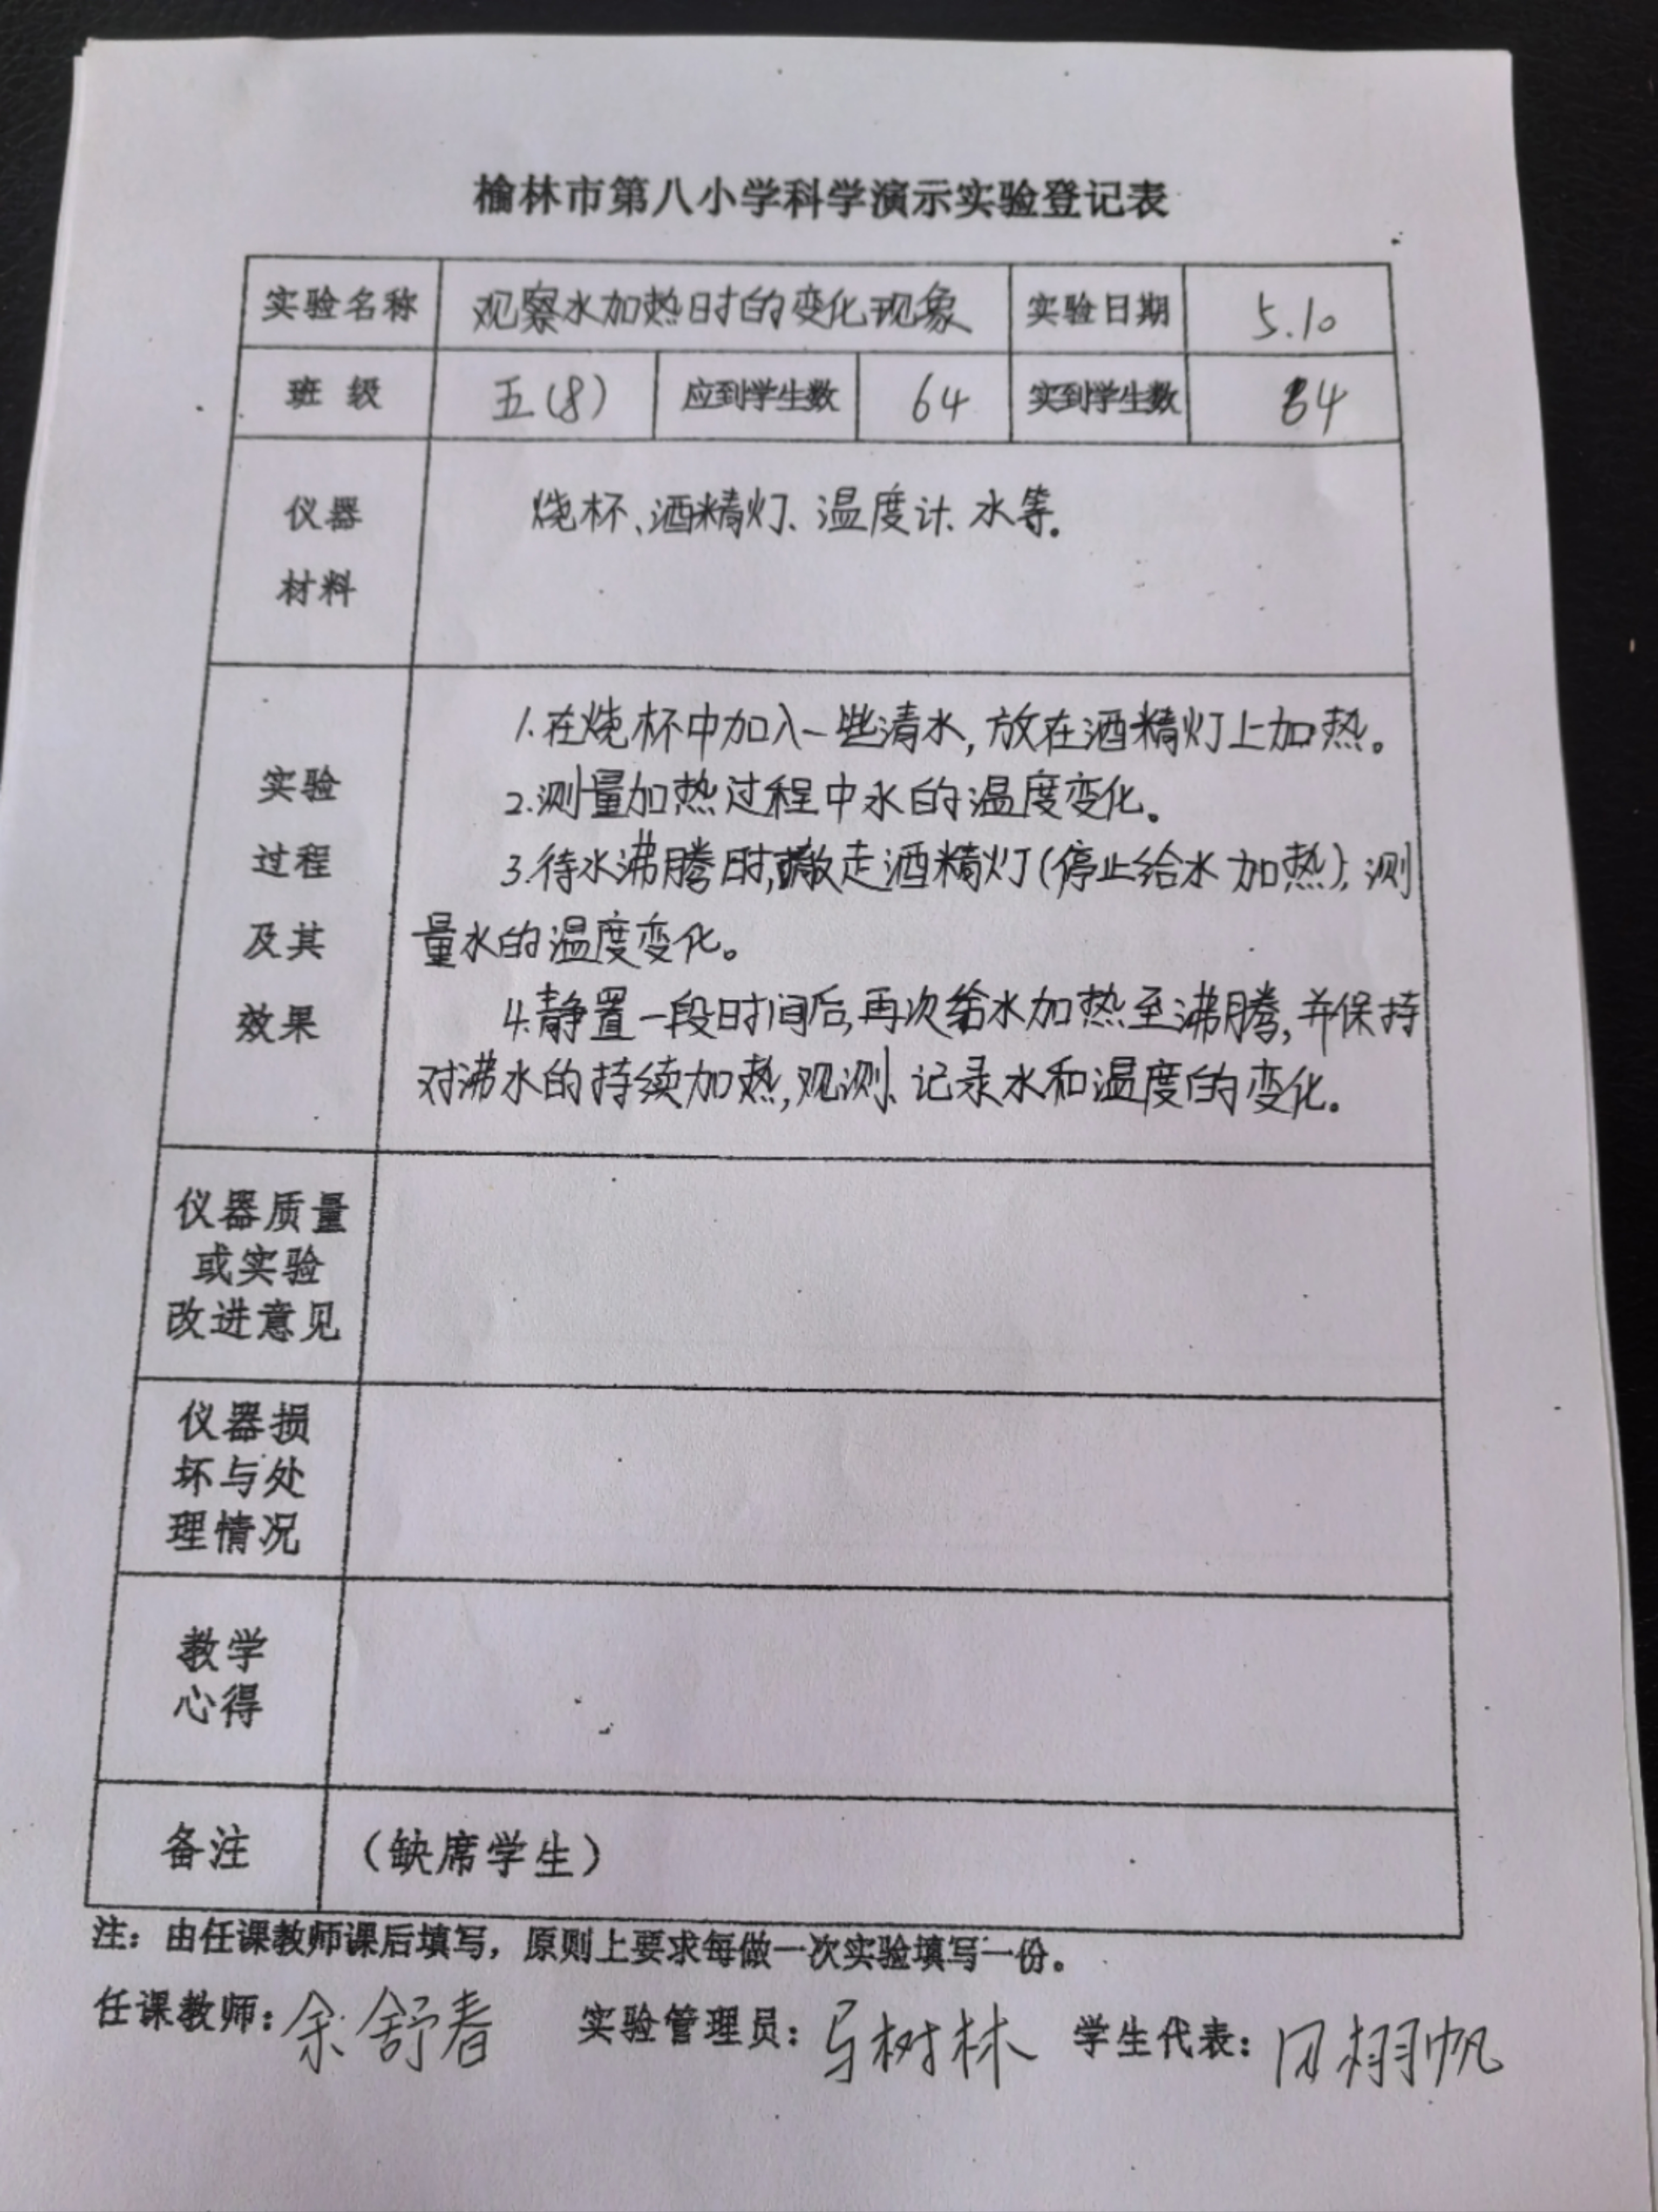 榆林市第八小学科学演示实验登记表
实验名称 观察水加热时的变化现象 实验日期 5.10
班 级 五(8) 应到学生数 64 实到学生数 64
仪器 烧杯、酒精灯、温度计、水等。
材料
1.在烧杯中加入一些清水,放在酒精灯上加热。
实验 2.测量加热过程中水的温度变化。
过程 3.待水沸腾时,撤走酒精灯(停止给水加热),测
及其 量水的温度变化。
效果 4.静置一段时间后,再次给水加热至沸腾,并保持
对沸水的持续加热,观测、记录水和温度的变化。
仪器质量
或实验
改进意见
仪器损
坏与处
理情况
教学
心得
备注 (缺席学生)
注:由任课教师课后填写,原则上要求每做一次实验填写一份。
任课教师:余舒春 实验管理员:马树林 学生代表:栩帆